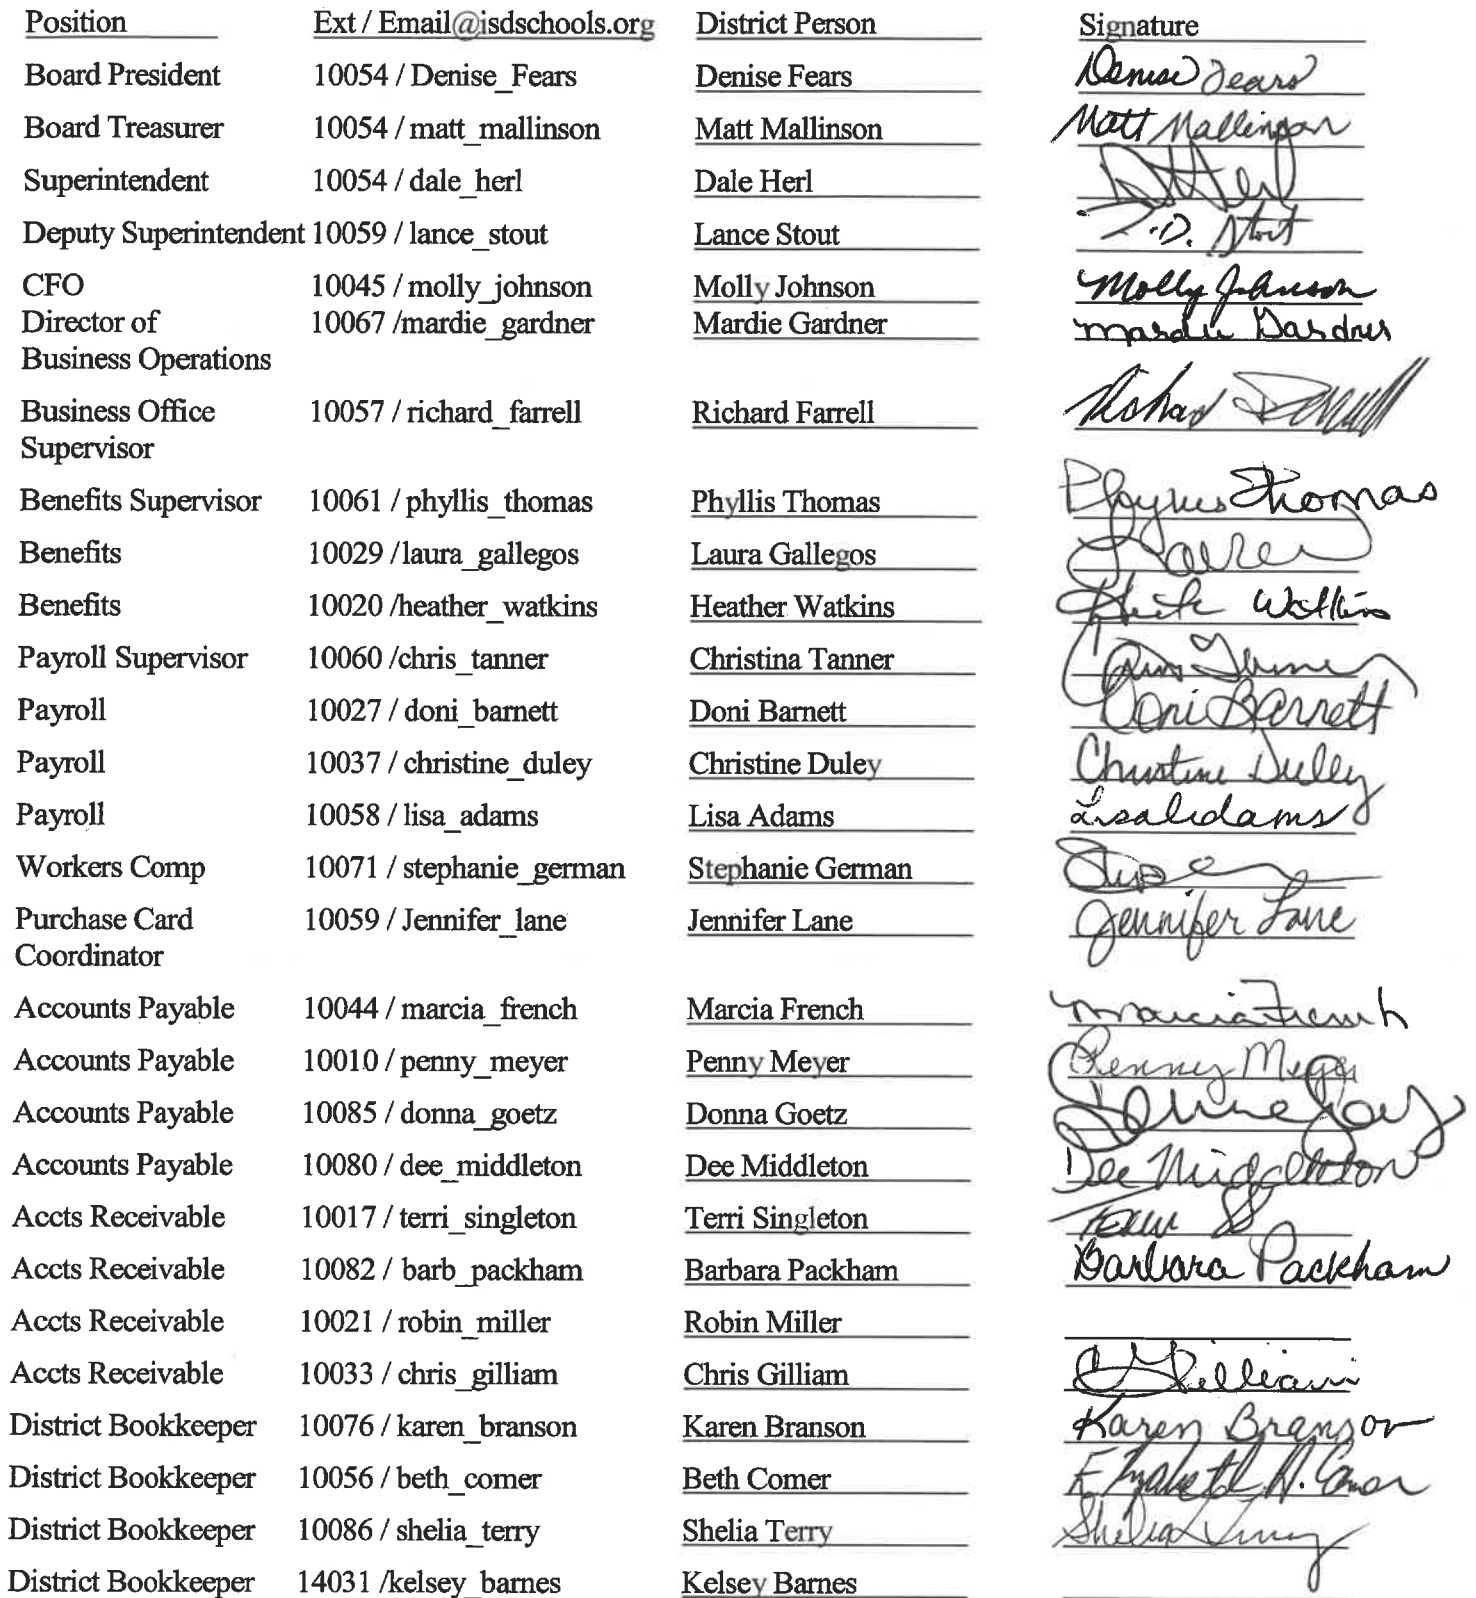 Position Ext / Email@isdschools.org District Person Signature
Board President 10054 / Denise_Fears Denise Fears Denise Fears
Board Treasurer 10054 / matt_mallinson Matt Mallinson Matt Mallinson
Superintendent 10054 / dale_herl Dale Herl
Deputy Superintendent 10059 / lance_stout Lance Stout
CFO 10045 / molly_johnson Molly Johnson Molly Johnson
Director of 10067 /mardie_gardner Mardie Gardner Mardie Gardner
Business Operations
Business Office 10057 / richard_farrell Richard Farrell
Supervisor
Benefits Supervisor 10061 / phyllis_thomas Phyllis Thomas Phyllis Thomas
Benefits 10029 /laura_gallegos Laura Gallegos
Benefits 10020 /heather_watkins Heather Watkins Watkins
Payroll Supervisor 10060 /chris_tanner Christina Tanner
Payroll 10027 / doni_barnett Doni Barnett Doni Barnett
Payroll 10037 / christine_duley Christine Duley Christine Duley
Payroll 10058 / lisa_adams Lisa Adams
Workers Comp 10071 / stephanie_german Stephanie German
Purchase Card 10059 / Jennifer_lane Jennifer Lane Jennifer Lane
Coordinator
Accounts Payable 10044 / marcia_french Marcia French Marcia French
Accounts Payable 10010 / penny_meyer Penny Meyer Penny Meyer
Accounts Payable 10085 / donna_goetz Donna Goetz
Accounts Payable 10080 / dee_middleton Dee Middleton Dee Middleton
Accts Receivable 10017 / terri_singleton Terri Singleton Terri S
Accts Receivable 10082 / barb_packham Barbara Packham Barbara Packham
Accts Receivable 10021 / robin_miller Robin Miller
Accts Receivable 10033 / chris_gilliam Chris Gilliam C Gilliam
District Bookkeeper 10076 / karen_branson Karen Branson Karen Branson
District Bookkeeper 10056 / beth_comer Beth Comer Elizabeth H. Comer
District Bookkeeper 10086 / shelia_terry Shelia Terry Shelia Terry
District Bookkeeper 14031 /kelsey_barnes Kelsey Barnes